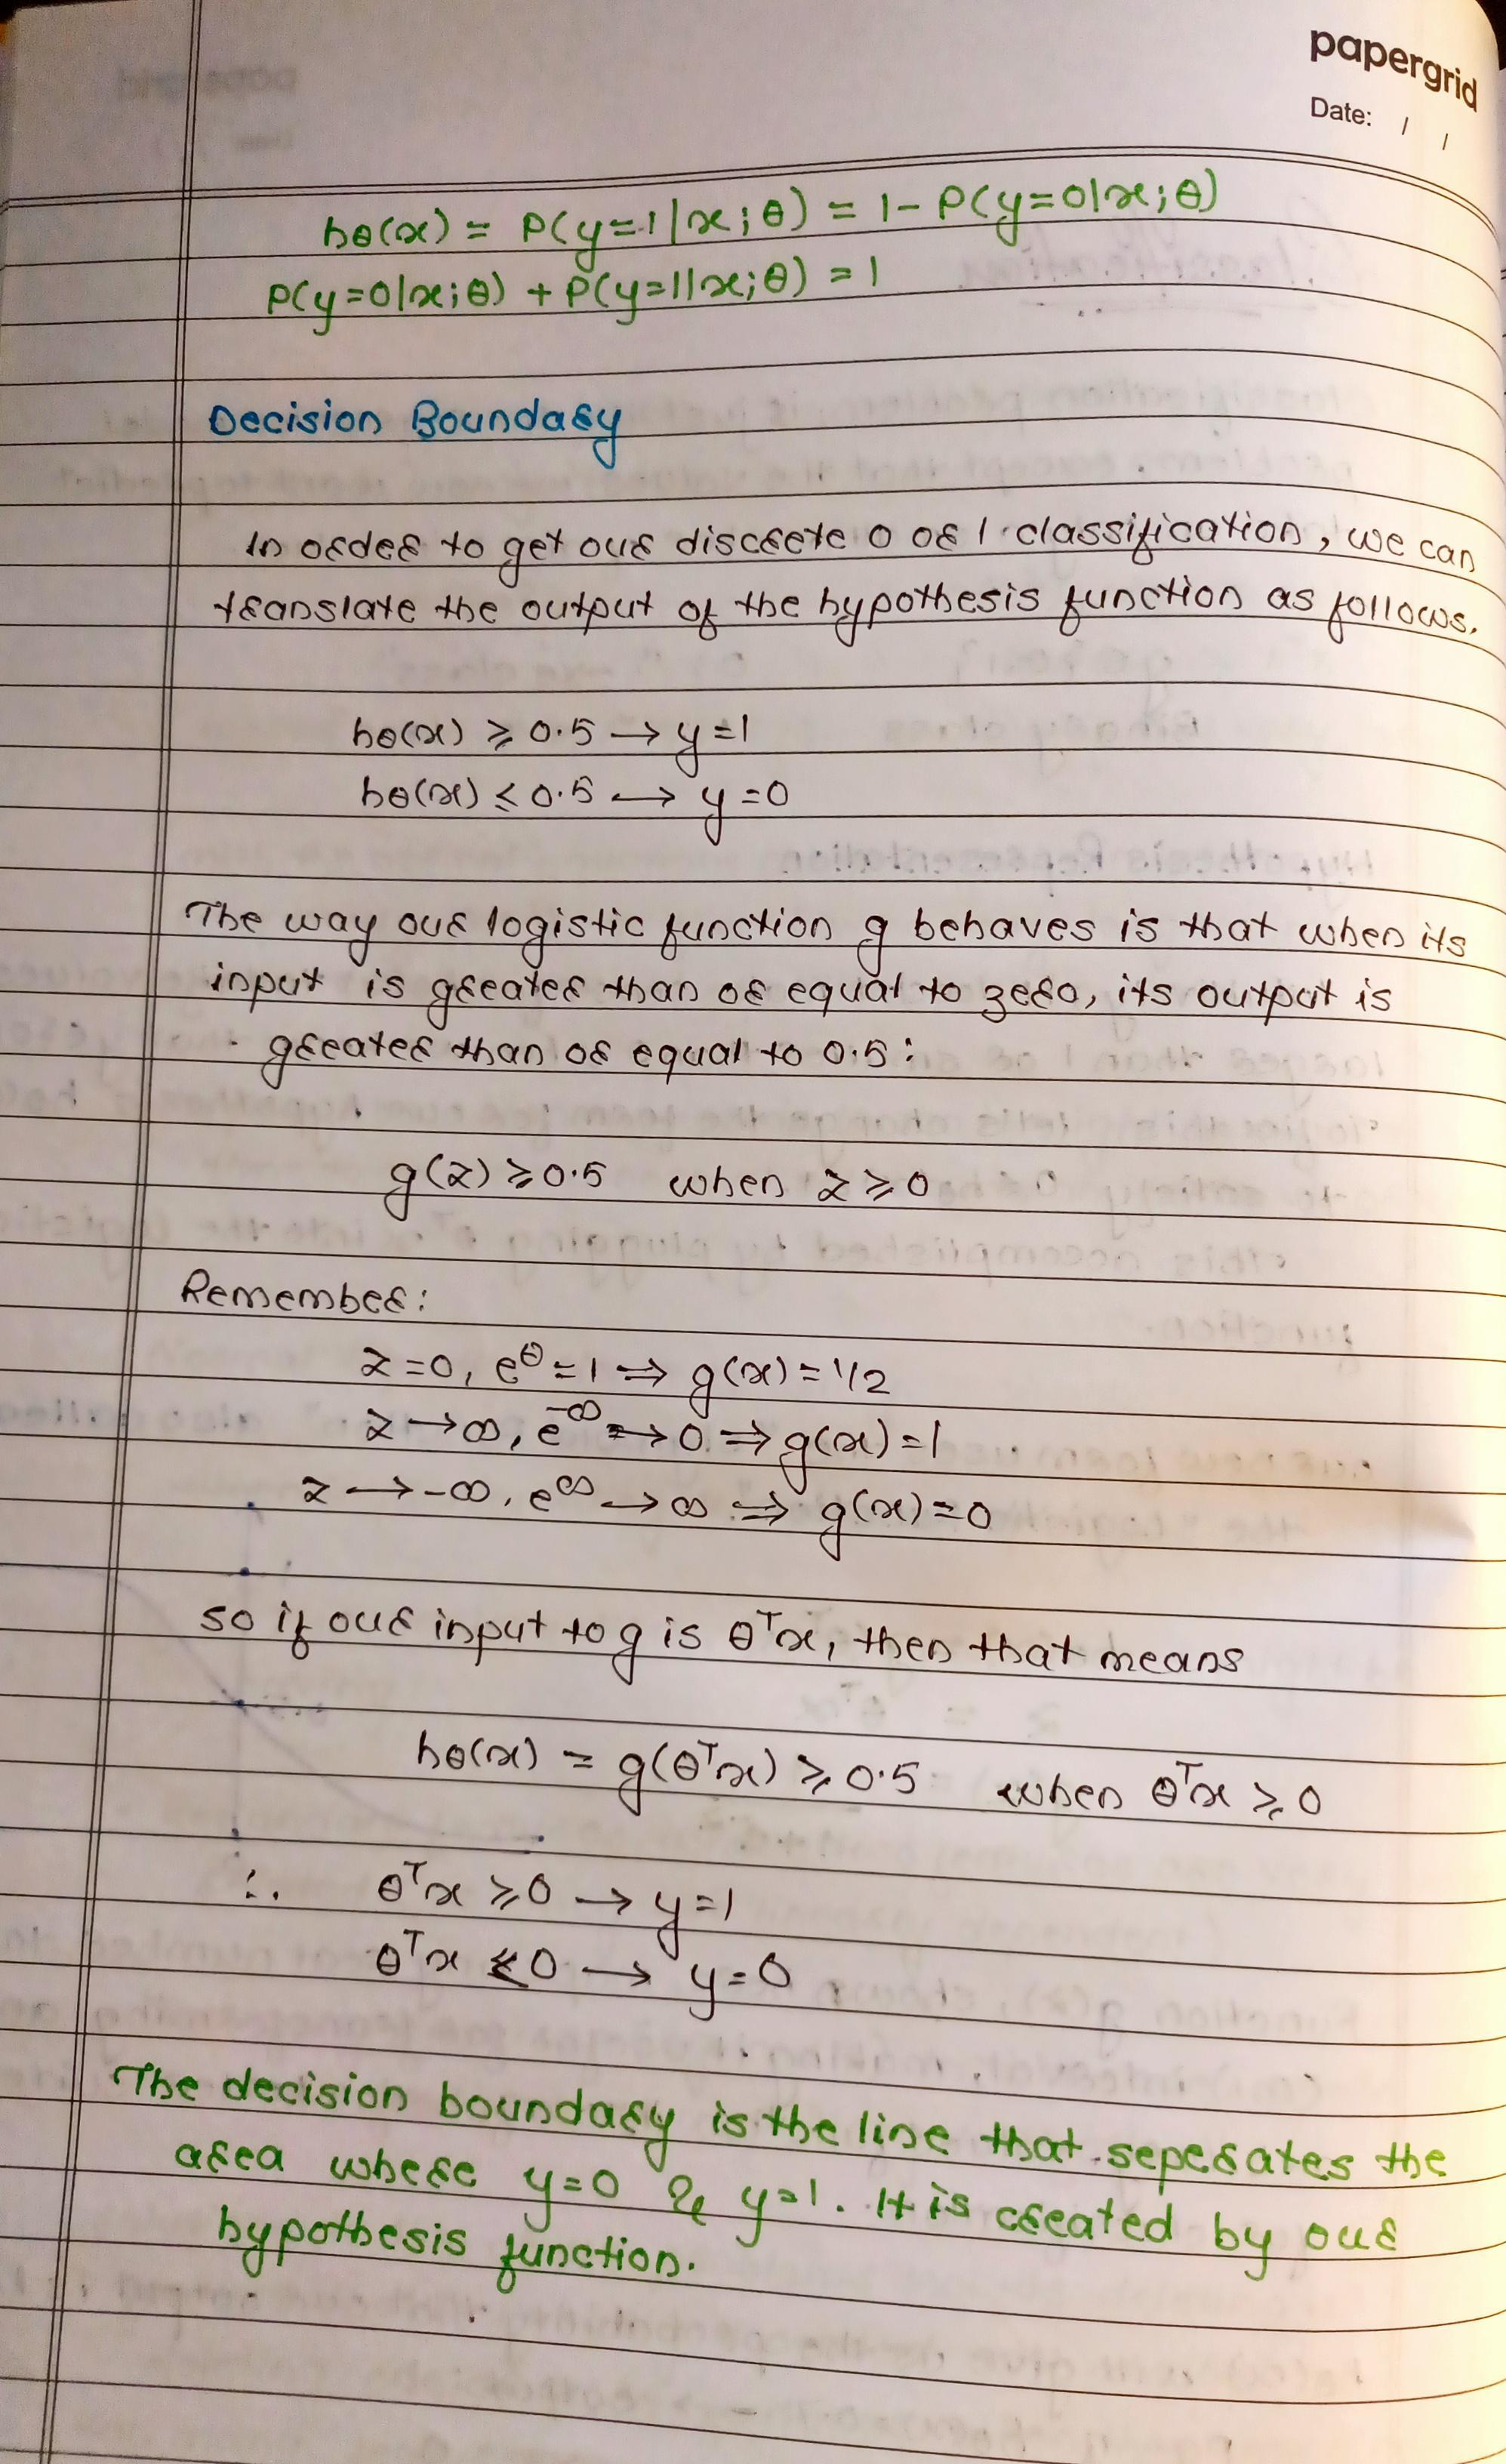 papergrid
Date: / /
hθ(x) = P(y=1|x;θ) = 1- P(y=0|x;θ)
P(y=0|x;θ) + P(y=1|x;θ) = 1
Decision Boundary
In order to get our discrete 0 or 1 classification, we can
translate the output of the hypothesis function as follows.
hθ(x) ≥ 0.5 → y=1
hθ(x) ≤ 0.5 → y=0
The way our logistic function g behaves is that when its
input is greater than or equal to zero, its output is
greater than or equal to 0.5:
g(z) ≥ 0.5 when z ≥ 0
Remember:
z=0, e⁰=1 ⇒ g(x)=1/2
z→∞, e^-∞ → 0 ⇒ g(x)=1
z→-∞, e^∞ → ∞ ⇒ g(x)=0
so if our input to g is θᵀx, then that means
hθ(x) = g(θᵀx) ≥ 0.5 when θᵀx ≥ 0
∴ θᵀx ≥ 0 → y=1
θᵀx < 0 → y=0
The decision boundary is the line that seperates the
area where y=0 & y=1. It is created by our
hypothesis function.